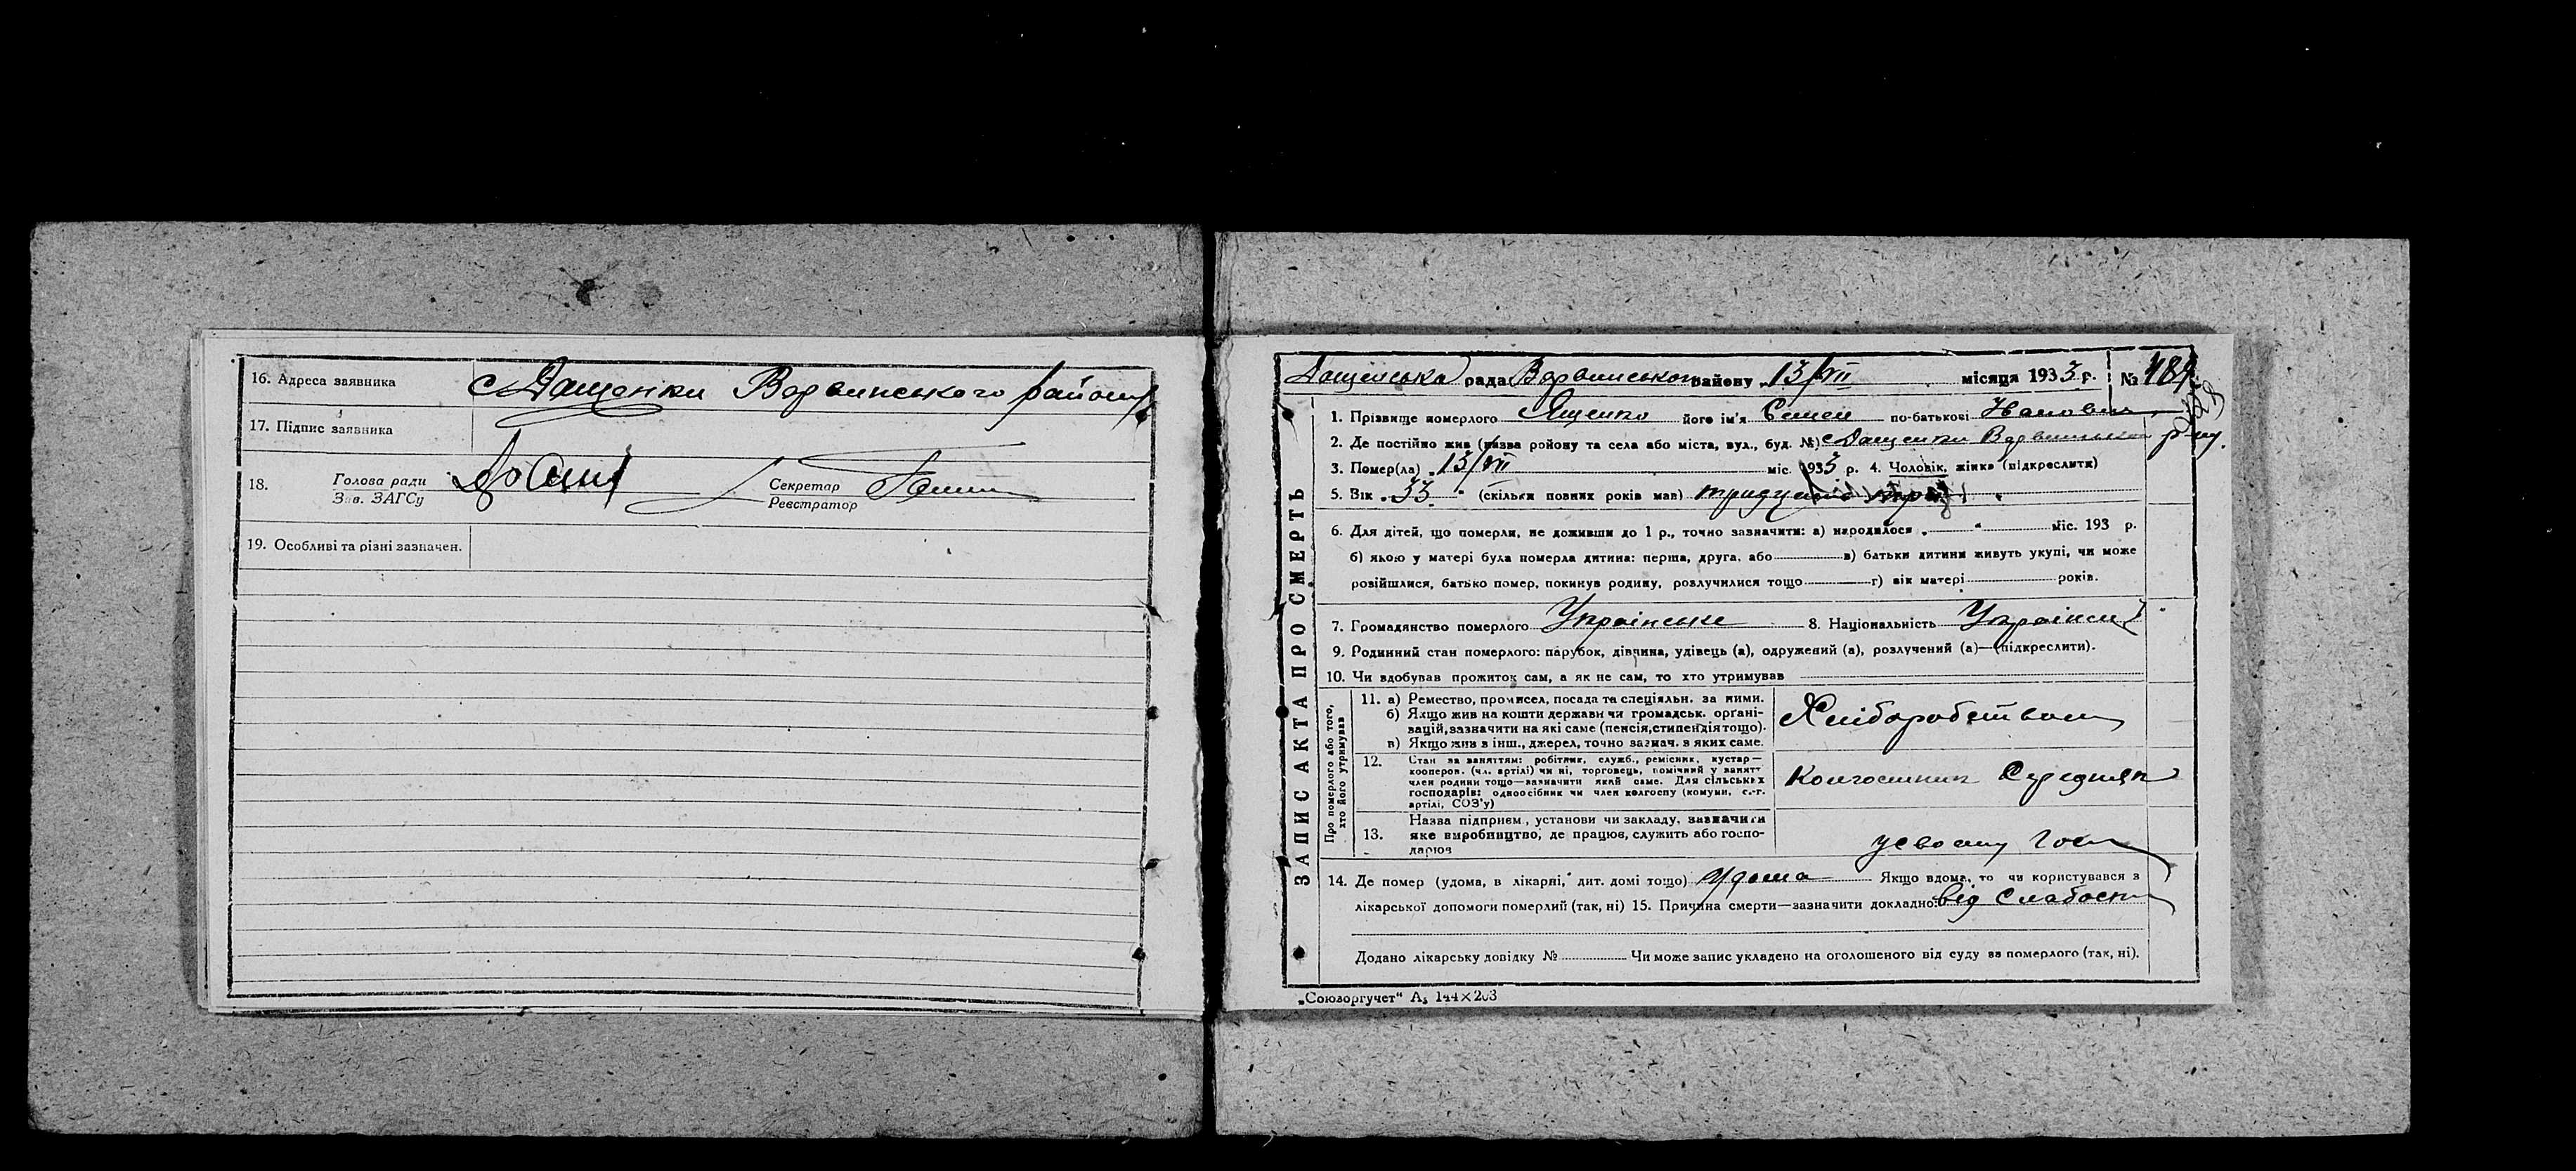 16. Адреса заявника с Дащенки Варвинського району
17. Підпис заявника
18. Голова ради
Зав. ЗАГСу
Секретар
Реєстратор
19. Особливі та різні зазначен.
ЗАПИС АКТА ПРО СМЕРТЬ
Дащенська рада Варвинського району „13/VII місяця 1933 р. № 189
1. Прізвище померлого Ященко його ім'я Семен по-батькові Іванович
2. Де постійно жив (назва району та села або міста, вул., буд. №) с Дащенки Варвинського р-ну.
3. Помер(ла) „13/VII міс. 1933 р. 4. Чоловік, жінка (підкреслити)
5. Вік „33" (скільки повних років мав) тридцять три
6. Для дітей, що померли, не доживши до 1 р., точно зазначити: а) народилося „ " міс. 193 р.
б) якою у матері була померла дитина: перша, друга, або в) батьки дитини живуть укупі, чи може
розійшлися, батько помер, покинув родину, розлучилися тощо г) вік матері років.
7. Громадянство померлого Українське 8. Національність Українец
9. Родинний стан померлого: парубок, дівчина, удівець (а), одружений (а), розлучений (а)—(підкреслити).
10. Чи здобував прожиток сам, а як не сам, то хто утримував
Про померлого або того,
хто його утримував
11. а) Ремество, промисел, посада та спеціяльн. за ними.
б) Якщо жив на кошти держави чи громадськ. орґані-
зацій, зазначити на які саме (пенсія, стипендія тощо).
в) Якщо жив з інш., джерел, точно зазнач. з яких саме.
Хліборобством
12. Стан за заняттям: робітник, служб., ремісник, кустар—
кооперов. (чл. артілі) чи ні, торговець, помічний у занятт
член родини тощо—зазначити який саме. Для сільських
господарів: одноосібник чи член колгоспу (комуни, с.-г.
артілі, СОЗ'у)
Колгоспник Середняк
13. Назва підприєм., установи чи закладу, зазначити
яке виробництво, де працює, служить або госпо-
дарює
усвоєму госп
14. Де помер (удома, в лікарні, дит. домі тощо) Удома Якщо вдома, то чи користувався з
лікарської допомоги померлий (так, ні) 15. Причина смерти—зазначити докладно: від Слабости
Додано лікарську довідку № Чи може запис укладено на оголошеного від суду за померлого (так, ні).
„Союзоргучет" А5 144×203